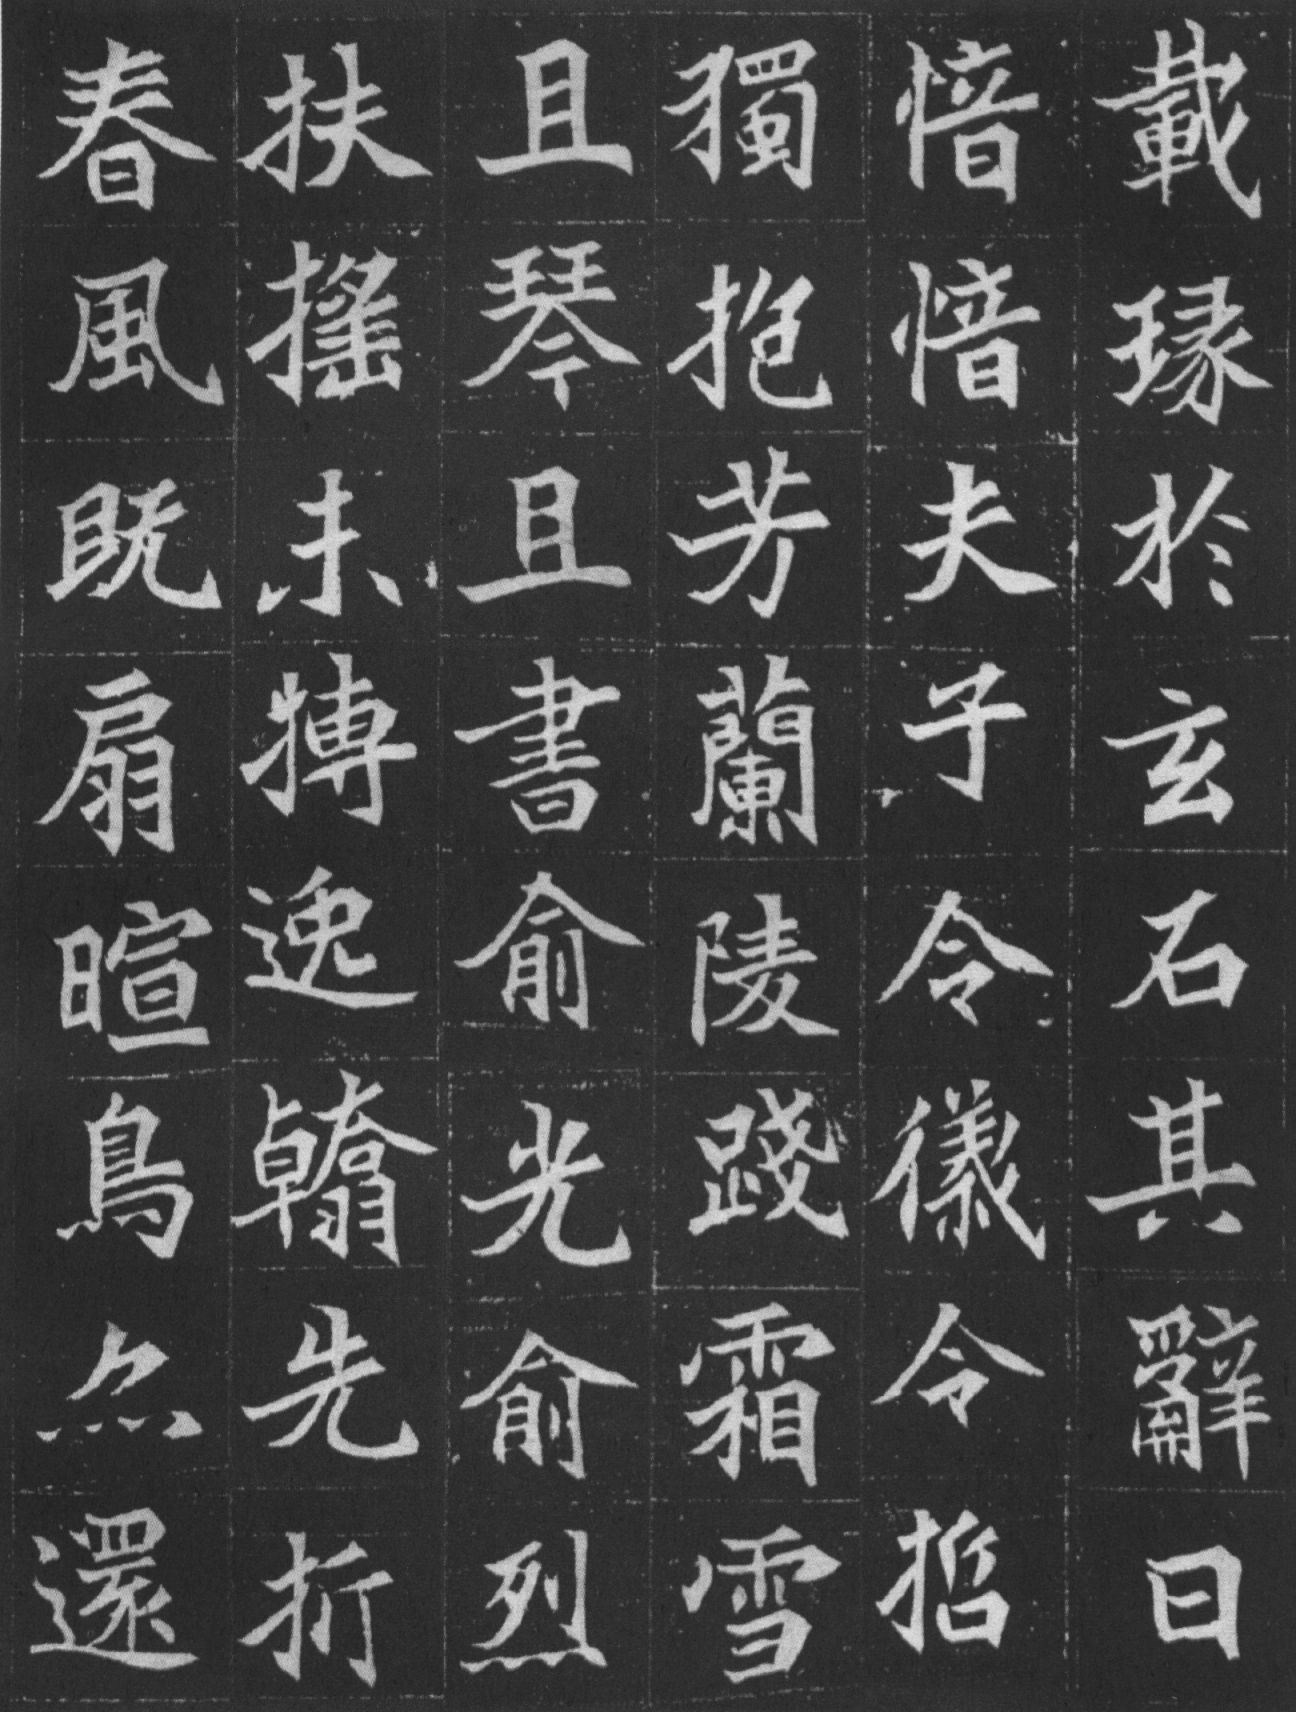 載琭於玄石其辭曰
愔愔夫子令儀令哲
獨抱芳蘭陵踐霜雪
且琴且書俞光俞烈
扶搖未摶逸翰先折
春風既扇暄鳥亦還